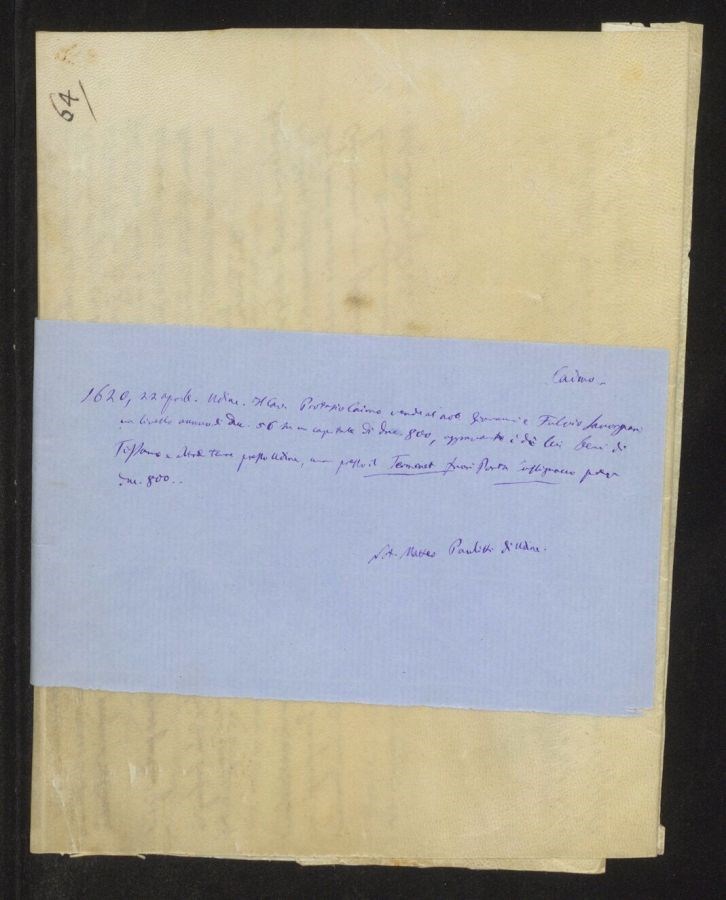 64
Caimo -
1620, 22 aprile. Udine. Il Cav. Protasio Caimo vende ai nob. Giovanni e Fulvio Savorgnani
un livello annuo di duc. 56 in capitale di duc. 800, i di lui beni di
Tissano e altre terre presso Udine, presso il Tormenet fuori Porta Cussignacco
duc. 800..
Not. Matteo Paulitti di Udine.